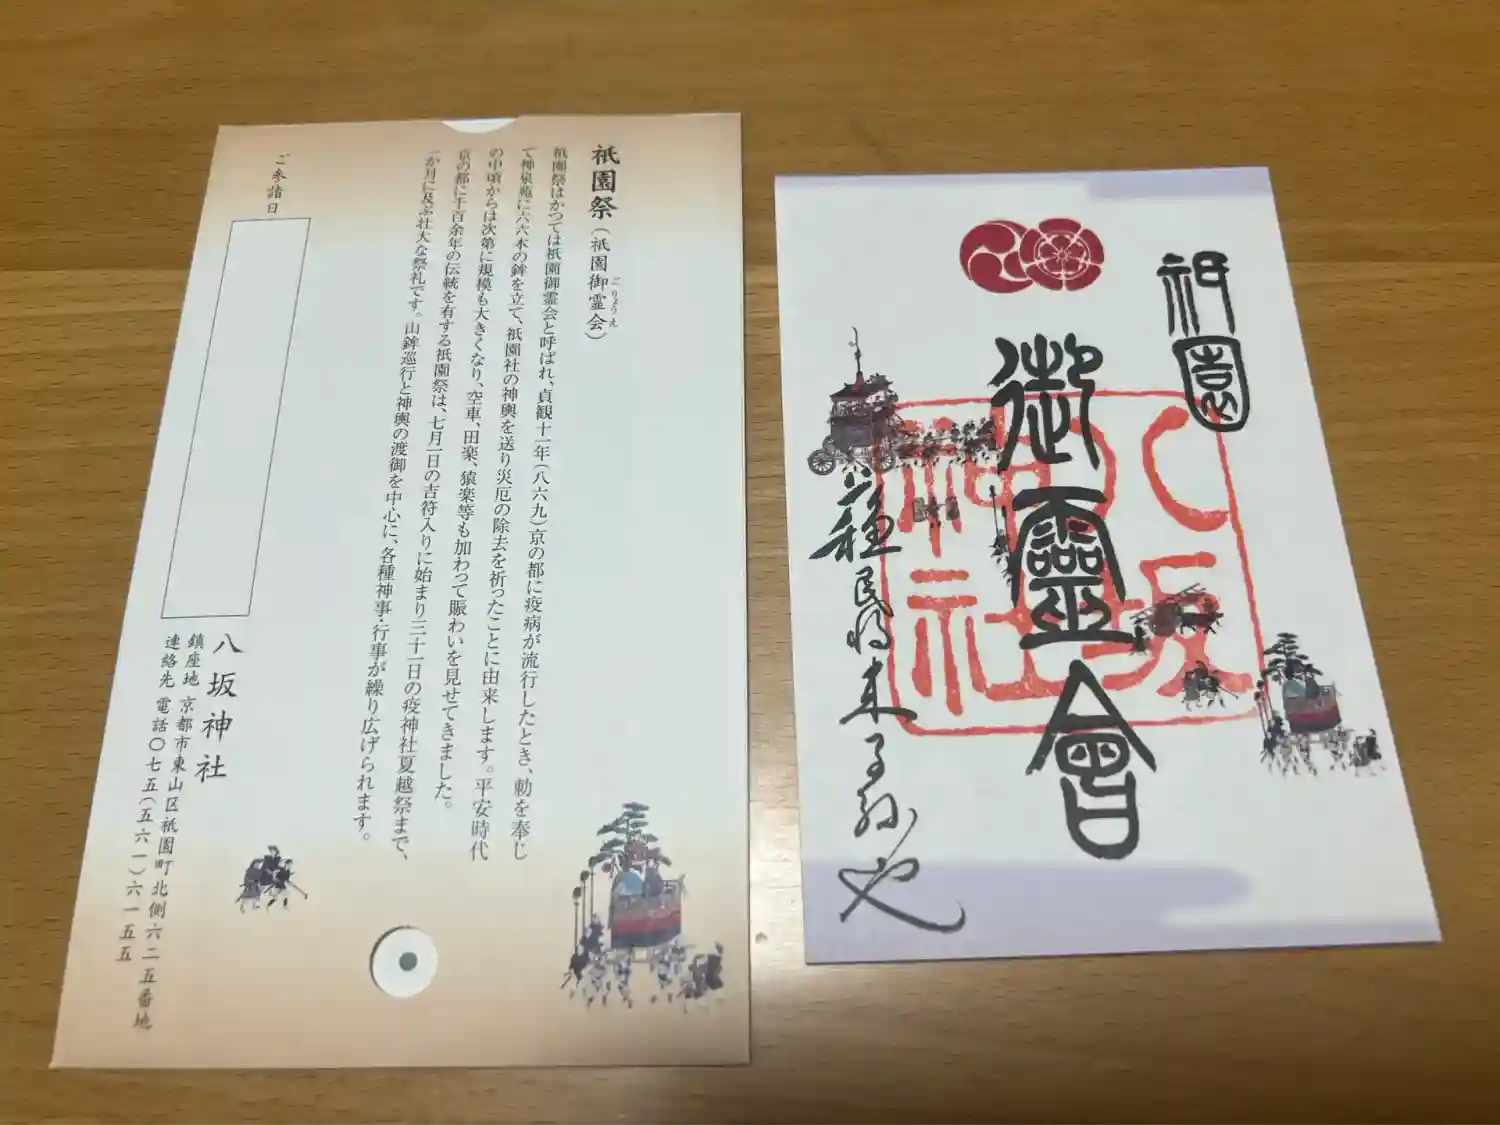 祇園祭（祇園御霊会）
ごりょうえ
祇園祭はかつては祇園御霊会と呼ばれ、貞観十一年（八六九）京の都に疫病が流行したとき、勅を奉じ
て神泉苑に六六本の鉾を立て、祇園社の神輿を送り災厄の除去を祈ったことに由来します。平安時代
の中頃からは次第に規模も大きくなり、空車、田楽、猿楽等も加わって賑わいを見せてきました。
京の都に千百余年の伝統を有する祇園祭は、七月一日の吉符入りに始まり三十一日の疫神社夏越祭まで、
一か月に及ぶ壮大な祭礼です。山鉾巡行と神輿の渡御を中心に、各種神事・行事が繰り広げられます。
ご参詣日
八坂神社
鎮座地 京都市東山区祇園町北側六二五番地
連絡先 電話〇七五（五六一）六一五五
祇園
御靈會
蘇民将来子孫也
八坂
神社